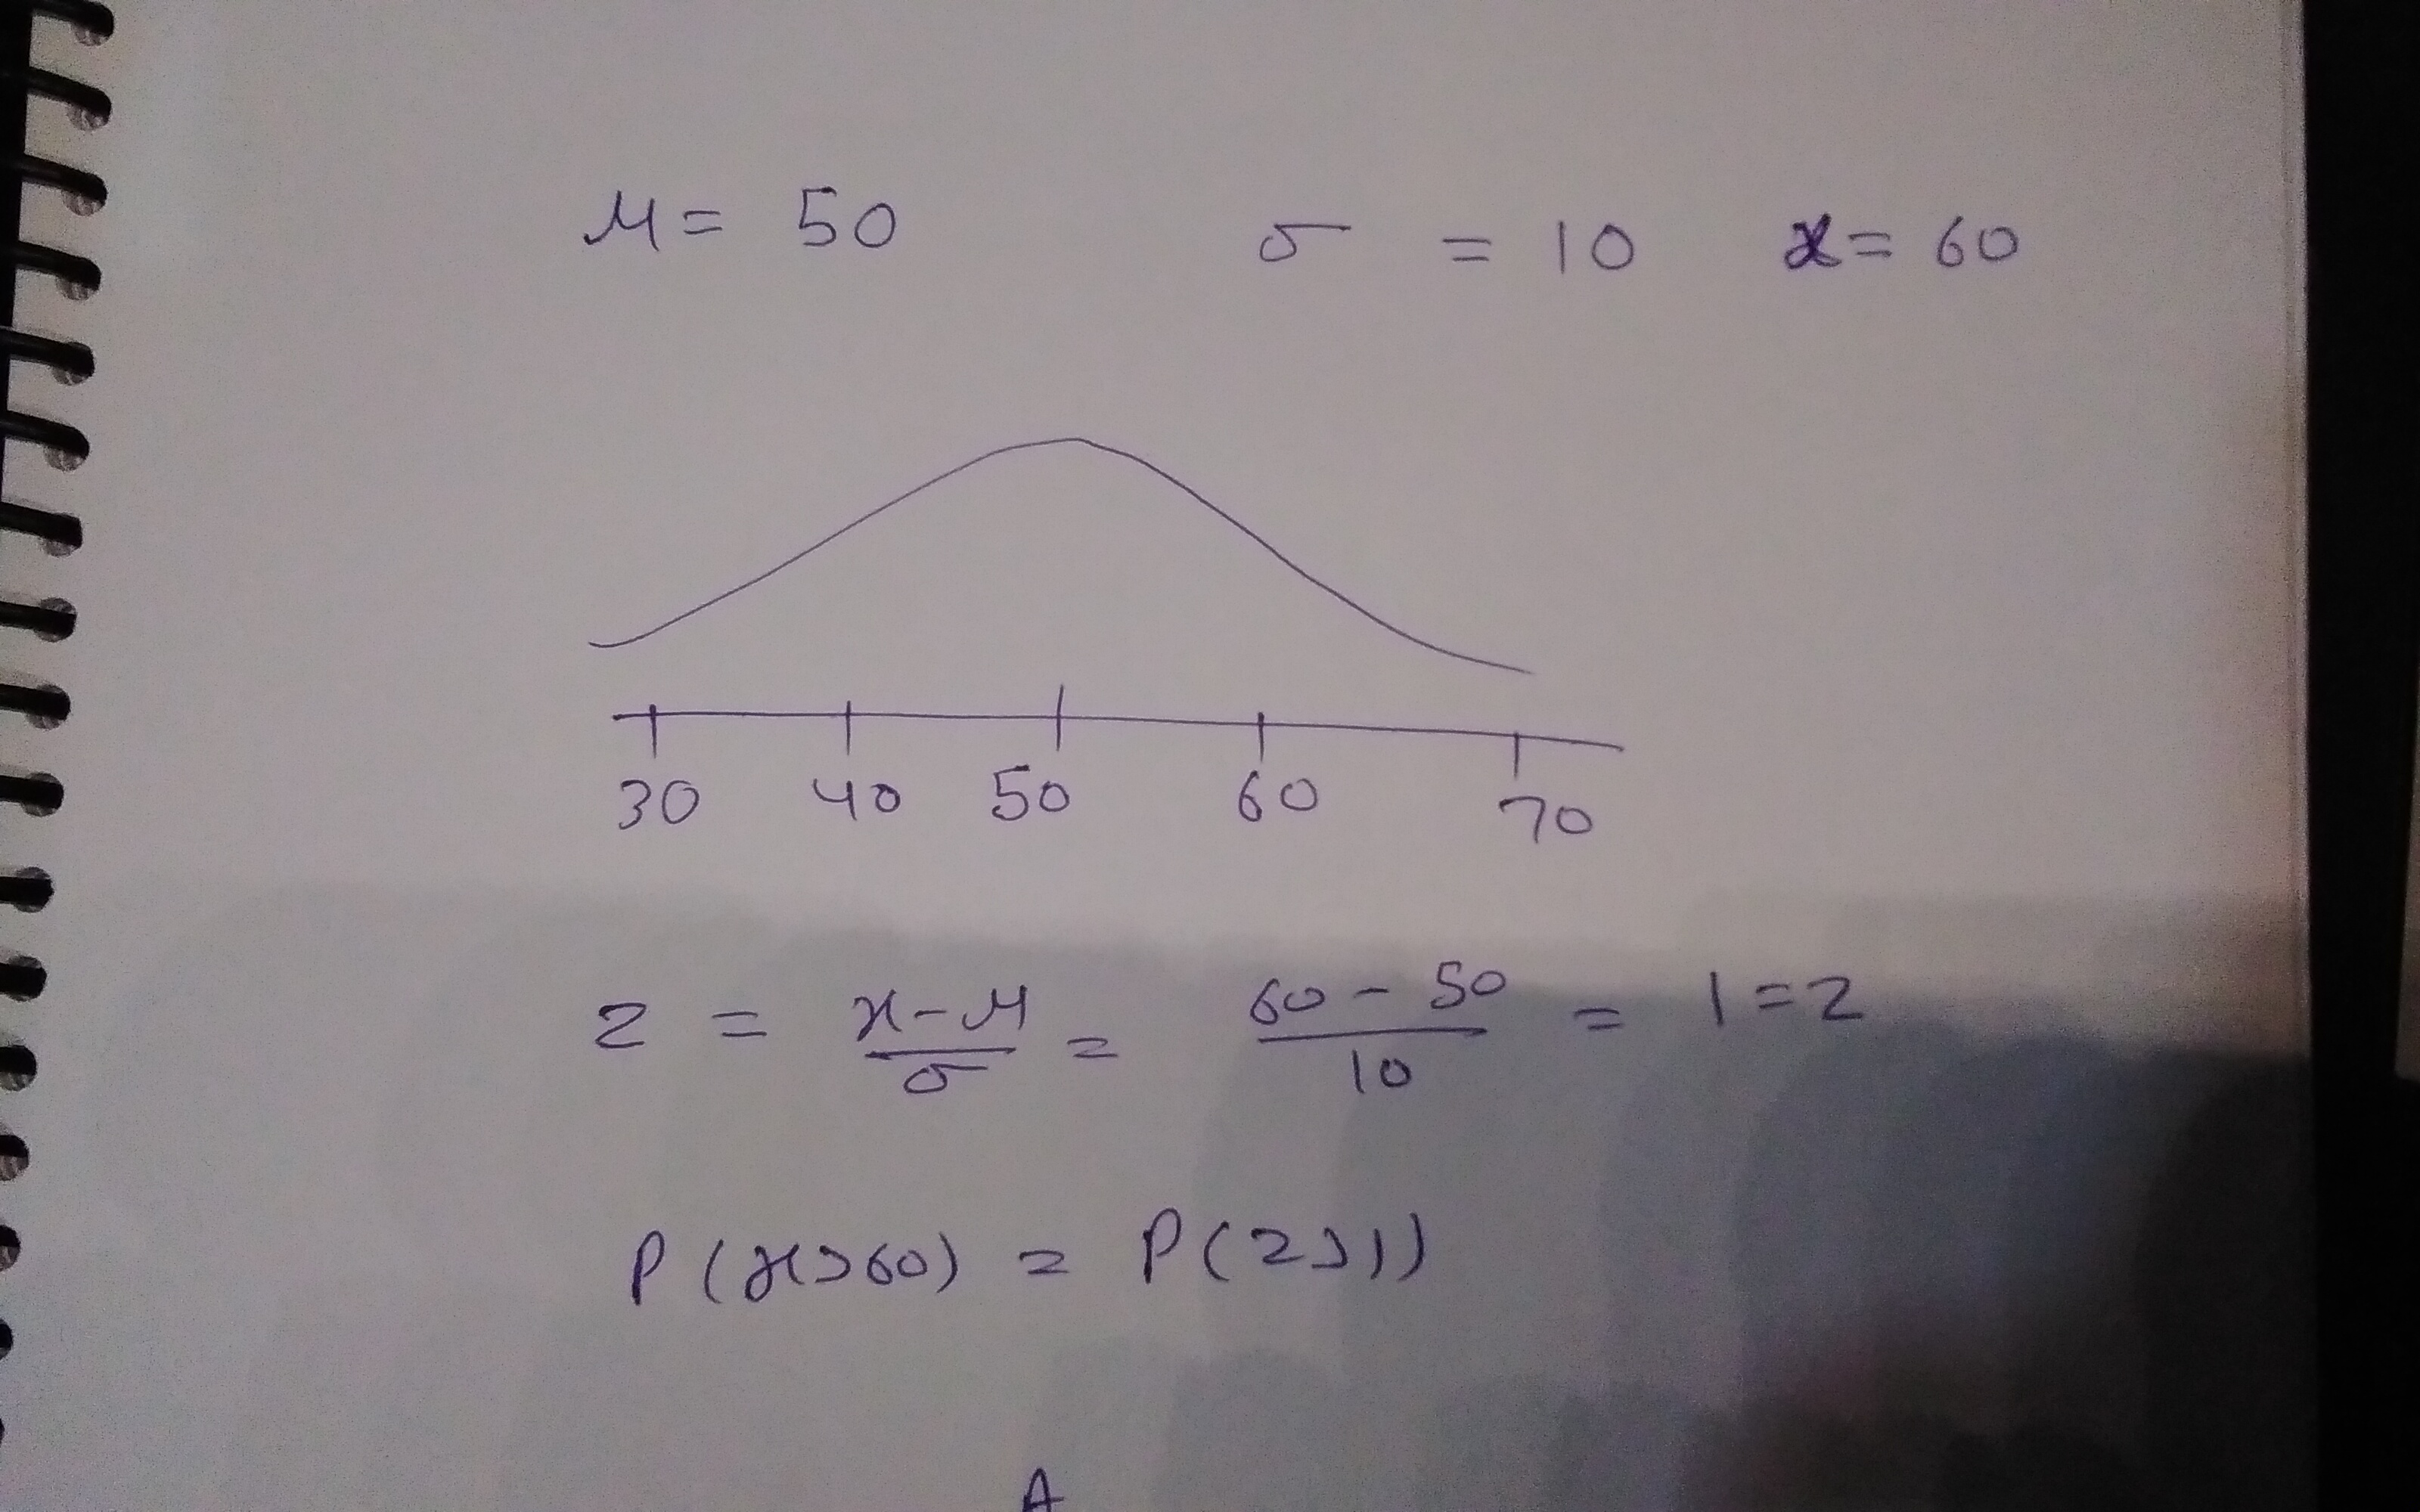 μ = 50 σ = 10 x = 60
30 40 50 60 70
z = x-μ/σ = 60-50/10 = 1 = z
P(x>60) = P(z>1)
A